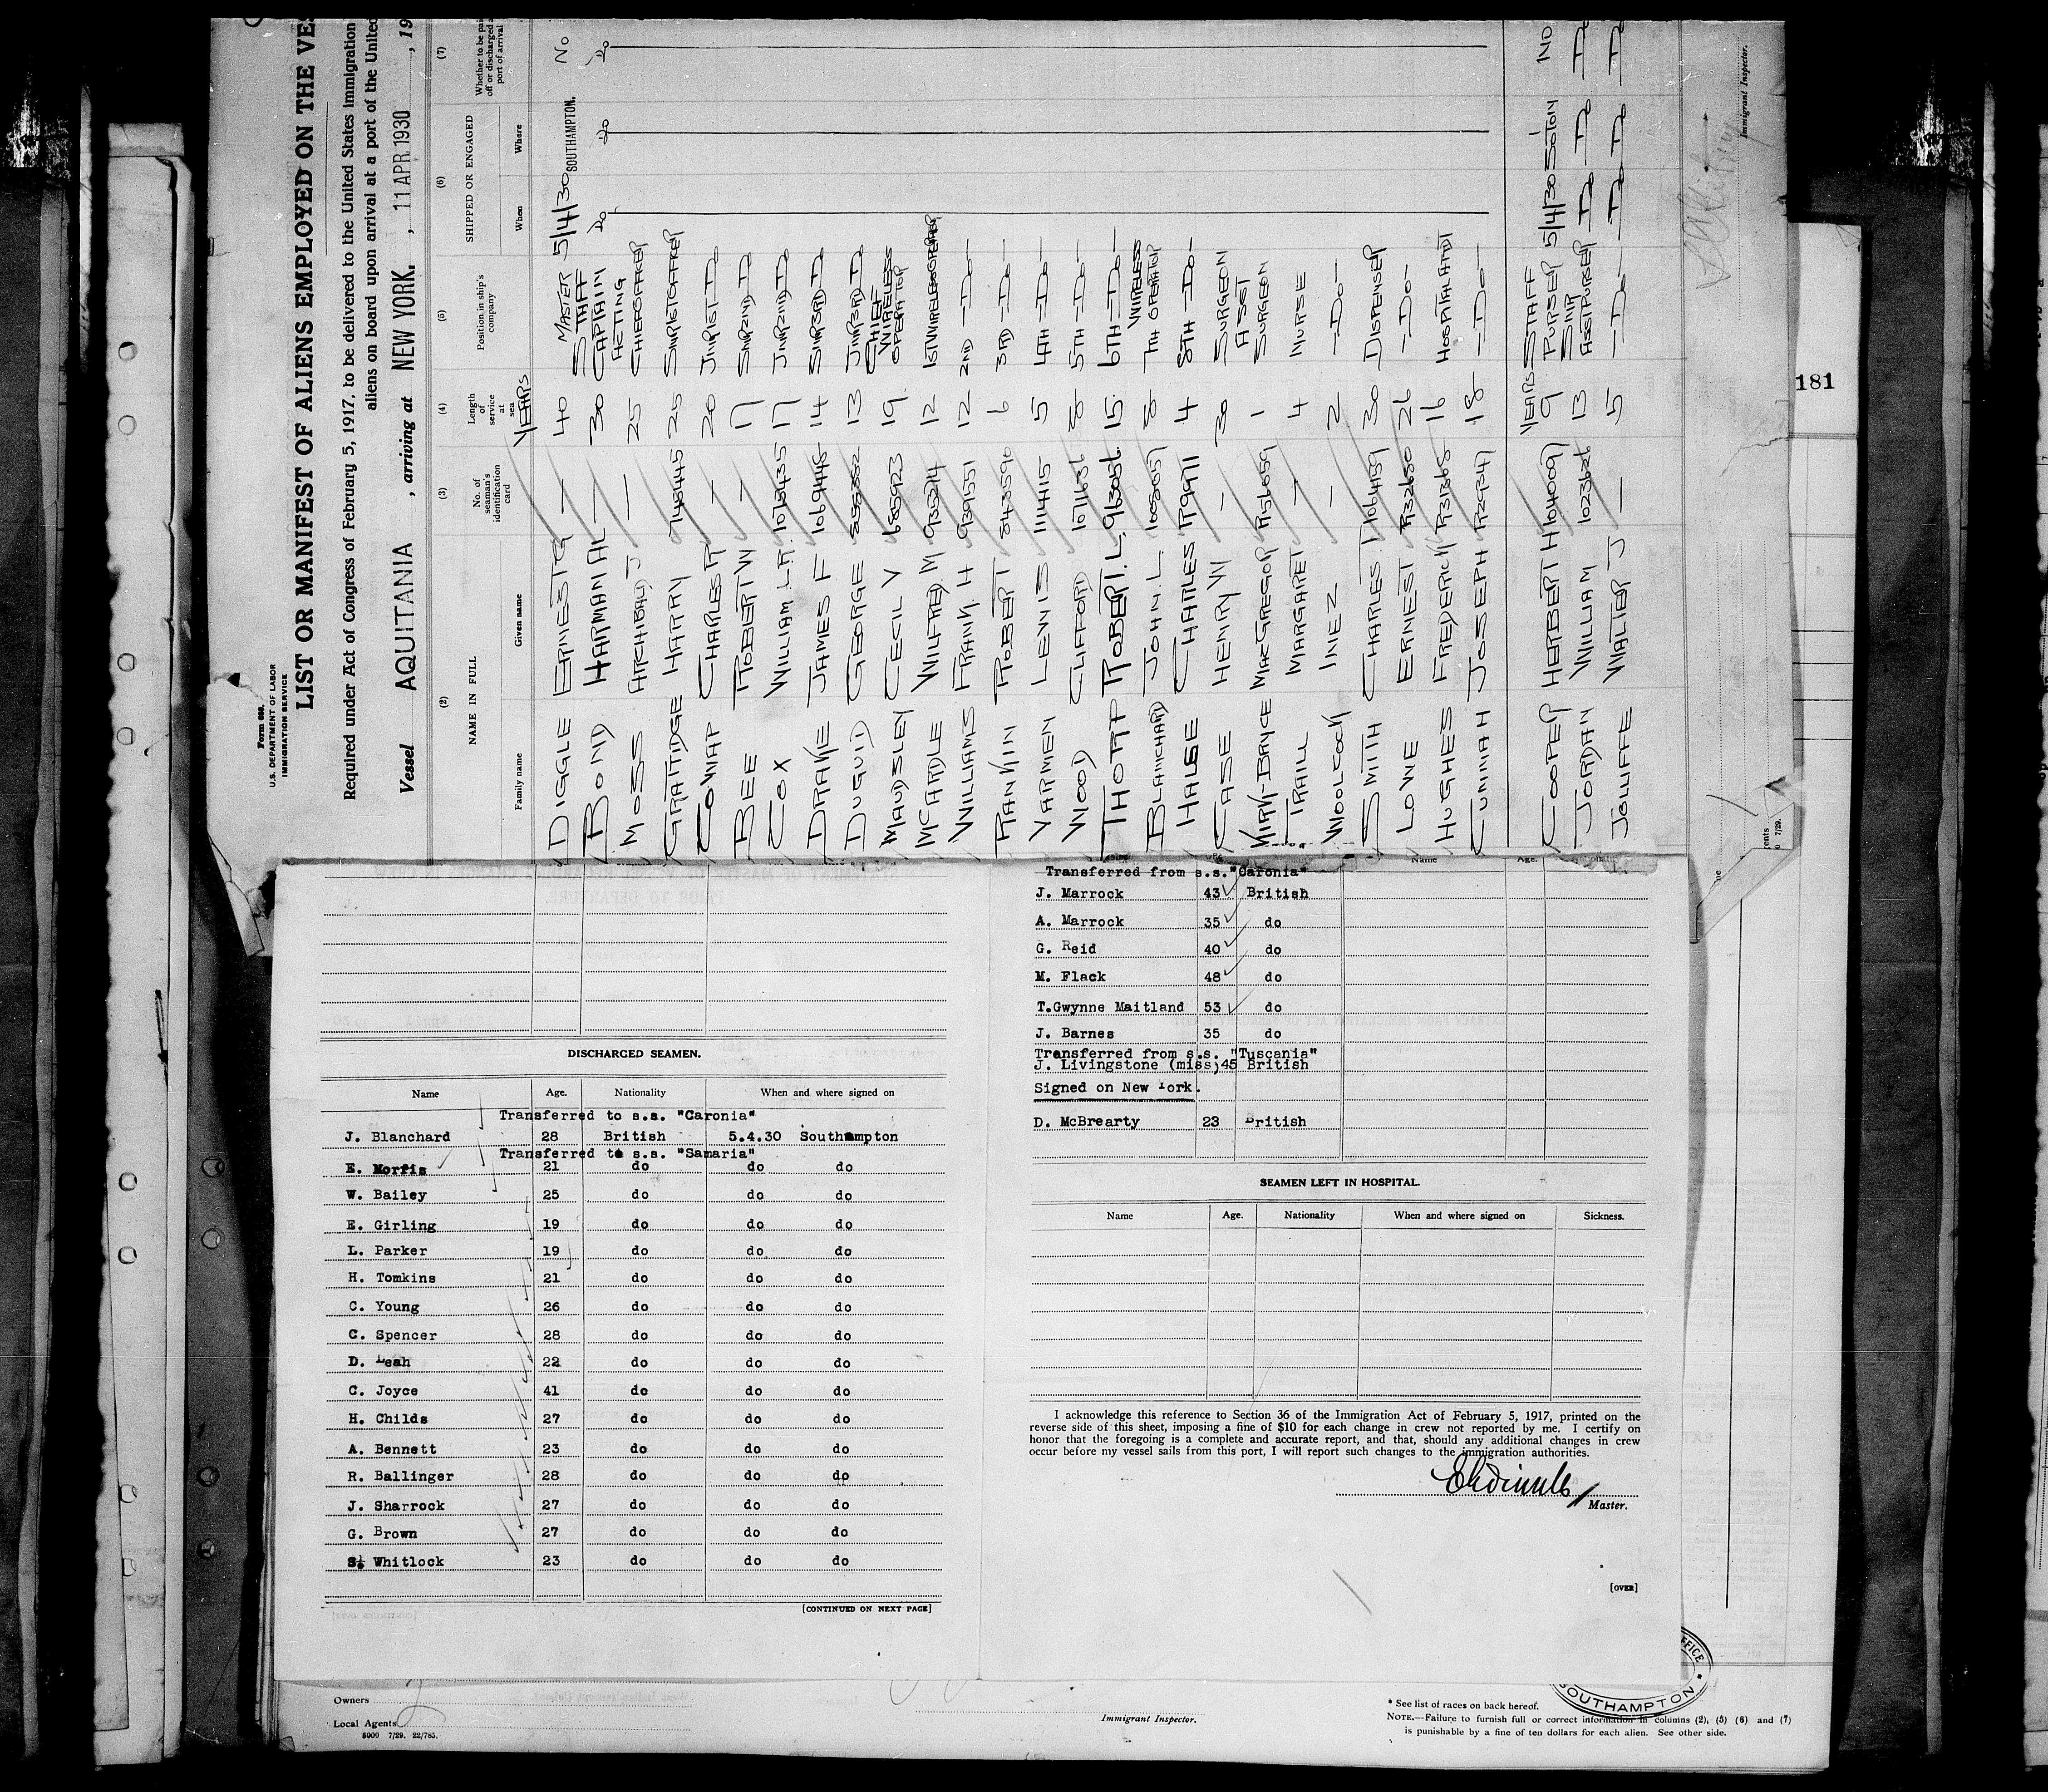 Form 680
U.S. DEPARTMENT OF LABOR
IMMIGRATION SERVICE
LIST OR MANIFEST OF ALIENS EMPLOYED ON THE
Required under Act of Congress of February 5, 1917, to be delivered to the United States Immigration
aliens on board upon arrival at a port of the United
Vessel AQUITANIA , arriving at NEW YORK. , 11 APR 1930 , 19
(2) (3) (4) (5) (6) (7)
NAME IN FULL No. of seaman's identification card Length of service at sea Position in ship's company SHIPPED OR ENGAGED Whether to be paid off or discharged at port of arrival
Family name Given name When Where
YEARS
DIGGLE ERNEST G — 40 MASTER 5/4/30 SOUTHAMPTON. NO
BOND HARMAN AL — 30 STAFF CAPTAIN DO DO DO
MOSS ARCHIBALD J — 25 ACTING CHIEF OFFICER
GRATTIDGE HARRY 745445 25 SNR 1ST OFFICER
COWAP CHARLES R — 20 JNR 1ST DO
BEE ROBERT W — 17 SNR 2ND DO
COX WILLIAM L.R. 1015435 17 JNR 2ND DO
DRAKE JAMES F 1069448 14 SNR 3RD DO
DUGUID GEORGE 13 JNR 3RD DO
MAUDSLEY CECIL V 685923 19 CHIEF WIRELESS OPERATOR
MCARDLE WILFRED M 935214 12 1ST WIRELESS OPERATOR
WILLIAMS FRANK H 939551 12 2ND — DO —
RANKIN ROBERT 843590 6 3RD — DO —
YARWEN LEWIS 1114115 5 4TH — DO —
WOOD CLIFFORD 1071636 8 5TH — DO —
THORP ROBERT L. 963056 15 6TH — DO —
BLANCHARD JOHN L. 1005057 8 7TH WIRELESS OPERATOR
HALSE CHARLES R79971 4 8TH — DO —
CASE HENRY W — 30 SURGEON
KIRK-BRYCE MACGREGOR R56059 1 ASST SURGEON
TRAILL MARGARET — 4 NURSE
WOOLCOCK INEZ — 2 — DO —
SMITH CHARLES 1106459 30 DISPENSER
LOWE ERNEST R32650 26 — DO —
HUGHES FREDERICK R31365 16 HOSPITAL ATTDT
CUNNAH JOSEPH R29347 18 — DO —
YEARS
COOPER HERBERT H 1104009 9 STAFF PURSER 5/4/30 SOTON NO
JORDAN WILLIAM 1023626 13 SNR ASST PURSER DO DO DO
JOLLIFFE WALTER J — 5 — DO — DO DO DO
Immigrant Inspector.
181
DISCHARGED SEAMEN.
Name Age. Nationality When and where signed on
Transferred to s.s. "Caronia"
J. Blanchard 28 British 5.4.30 Southampton
Transferred to s.s. "Samaria"
E. Morris 21 do do do
W. Bailey 25 do do do
E. Girling 19 do do do
L. Parker 19 do do do
H. Tomkins 21 do do do
C. Young 26 do do do
C. Spencer 28 do do do
D. Leah 22 do do do
C. Joyce 41 do do do
H. Childs 27 do do do
A. Bennett 23 do do do
R. Ballinger 28 do do do
J. Sharrock 27 do do do
G. Brown 27 do do do
S. Whitlock 23 do do do
[CONTINUED ON NEXT PAGE]
Name Age.
Transferred from s.s. "Caronia"
J. Marrock 43 British
A. Marrock 35 do
G. Reid 40 do
M. Flack 48 do
T.Gwynne Maitland 53 do
J. Barnes 35 do
Transferred from s.s. "Tuscania"
J. Livingstone (miss) 45 British
Signed on New York.
D. McBrearty 23 British
SEAMEN LEFT IN HOSPITAL.
Name Age. Nationality When and where signed on Sickness.
I acknowledge this reference to Section 36 of the Immigration Act of February 5, 1917, printed on the
reverse side of this sheet, imposing a fine of $10 for each change in crew not reported by me. I certify on
honor that the foregoing is a complete and accurate report, and that, should any additional changes in crew
occur before my vessel sails from this port, I will report such changes to the immigration authorities.
Master.
[OVER]
Owners
Local Agents
5000 7/29. 22/785.
Immigrant Inspector.
* See list of races on back hereof.
NOTE.—Failure to furnish full or correct information in columns (2), (5) (6) and (7)
is punishable by a fine of ten dollars for each alien. See other side.
OFFICE
SOUTHAMPTON